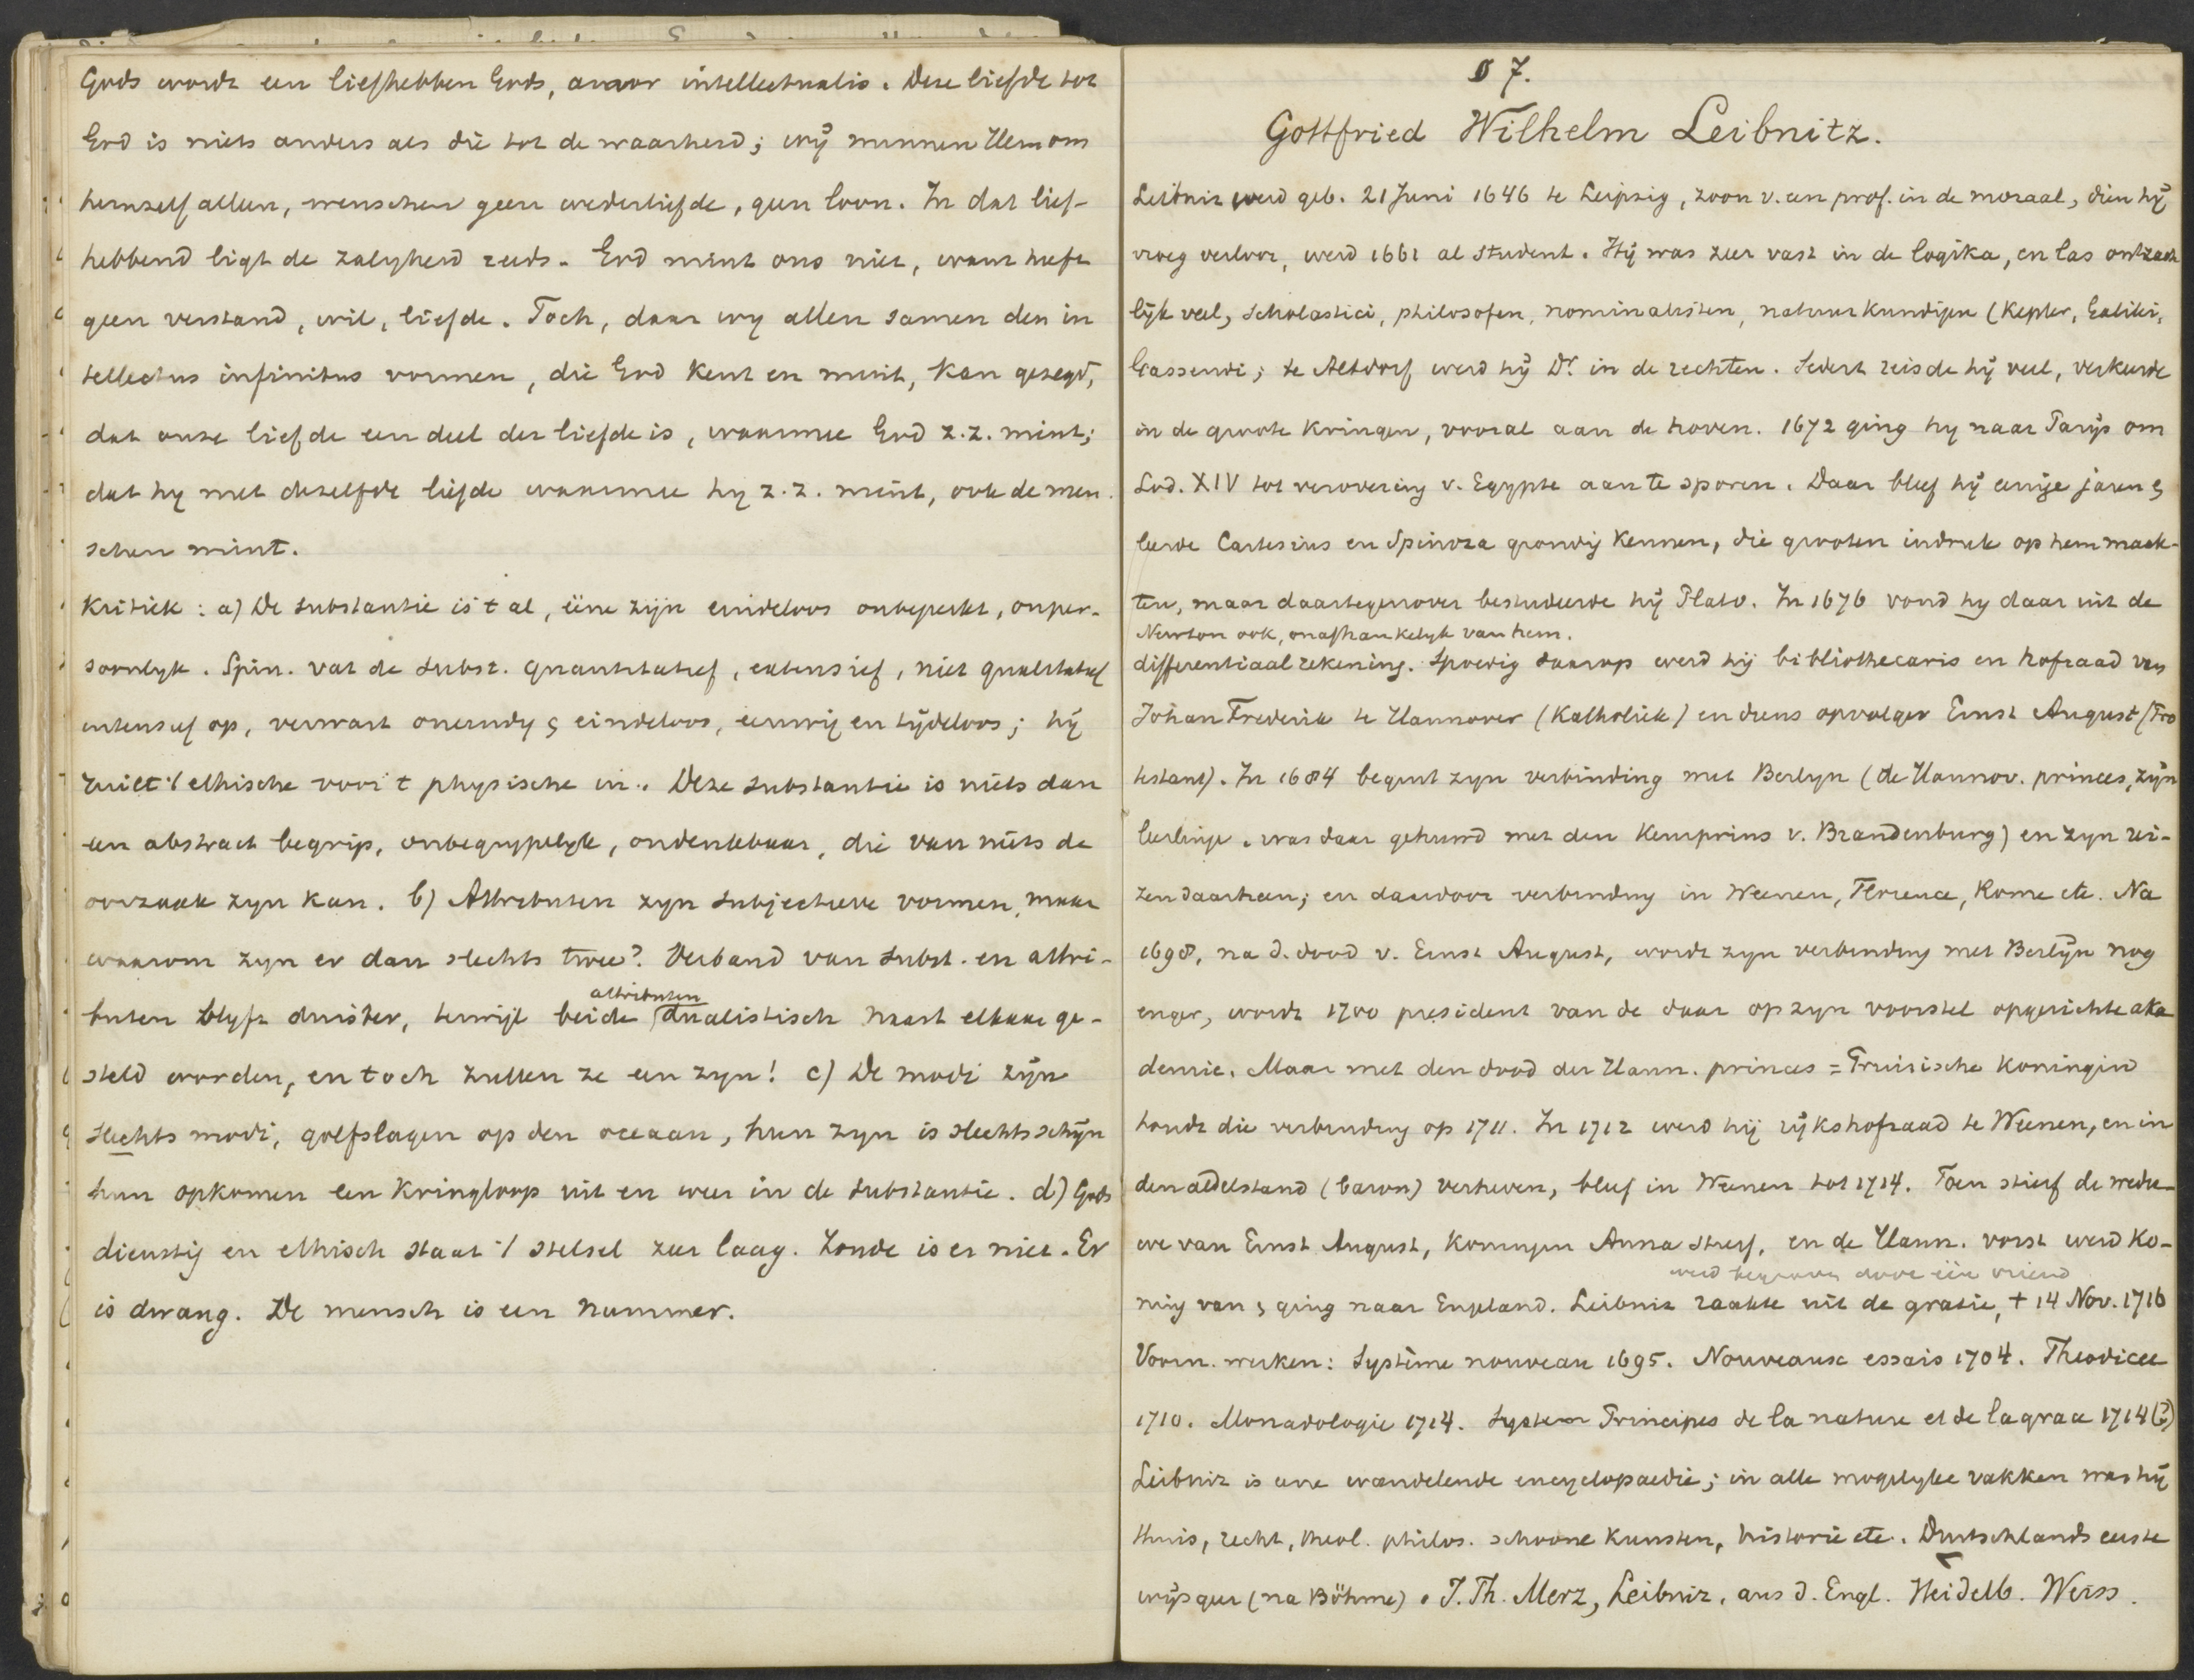 Gods wordt een liefhebben Gods, amor intellectualis. Deze liefde tot
God is niets anders als die tot de waarheid; wij minnen Hem om
hemzelf alleen, wenschen geen wederliefde, geen loon. In dat lief-
hebbend ligt de zaligheid reeds. God mint ons niet, want heeft
geen verstand, wil, liefde. Toch, daar wy allen samen den in
tellectus infinitus vormen, die God kent en mint, kan gezegd,
dat onze liefde een deel der liefde is, waarmee God z.z. mint;
dat hy met dezelfde liefde waarmee hy z.z. mint, ook de men-
schen mint.
Kritiek: a) De substantie is 't al, ééne zijn eindeloos onbeperkt, onper-
soonlyk. Spin. vat de subst. quantitatief, extensief, niet qualitatief
intensief op, verwart oneindig & eindeloos, eeuwig en tijdeloos; hij
ruilt 't ethische voor 't physische in. Deze substantie is niets dan
een abstract begrip, onbegrypelyk, ondenkbaar, die van niets de
oorzaak zyn kan. b) Attributen zyn subjectieve vormen, maar
waarom zyn er dan slechts twee? Verband van subst. en attri-
attributen
buten blyft duister, terwijl beide dualistisch naast elkaar ge-
steld worden, en toch zullen ze een zyn! c) De modi zijn
slechts modi, golfslagen op den oceaan, hun zyn is slechts schijn
hun opkomen een kringloop uit en weer in de substantie. d) Gods
dienstig en ethisch staat 't stelsel zeer laag. Zonde is er niet. Er
is dwang. De mensch is een nummer.
§ 7.
Gottfried Wilhelm Leibnitz.
Leibniz werd geb. 21 Juni 1646 te Leipzig, zoon v. een prof. in de moraal, dien hij
vroeg verloor, werd 1661 al student. Hij was zeer vast in de logika, en las ontzach
lijk veel, scholastici, philosofen, nominalisten, natuurkundigen (Kepler, Galilei,
Gassendi; te Altdorf werd hij Dr. in de rechten. Sedert reisde hij veel, verkeerde
in de groote kringen, vooral aan de hoven. 1672 ging hy naar Parijs om
Lod. XIV tot verovering v. Egypte aan te sporen. Daar bleef hij eenige jaren &
leerde Cartesius en Spinoza grondig kennen, die grooten indruk op hem maak-
ten, maar daartegenover bestudeerde hij Plato. In 1676 vond hy daar uit de
Newton ook, onafhankelyk van hem.
differentiaalrekening. Spoedig daarop werd hij bibliothecaris en hofraad van
Johan Frederik te Hannover (Katholiek) en diens opvolger Ernst August (Pro
testant). In 1684 begint zyn verbinding met Berlyn (de Hannov. princes, zijn
leerlinge, was daar gehuwd met den Keurprins v. Brandenburg) en zyn rei-
zen daarheen; en daardoor verbinding in Weenen, Florence, Rome etc. Na
1698, na d. dood v. Ernst August, wordt zyn verbinding met Berlijn nog
enger, wordt 1700 president van de daar op zyn voorstel opgerichte aka
demie. Maar met den dood der Hann. princes = Pruisische Koningin
houdt die verbinding op 1711. In 1712 werd hij rijkshofraad te Weenen, en in
den adelstand (baron) verheven, bleef in Weenen tot 1714. Toen stierf de wedu-
we van Ernst August, Koningin Anna stierf, en de Hann. vorst werd Ko-
werd begraven door één vriend
ning van & ging naar Engeland. Leibniz raakte uit de gratie, † 14 Nov. 1716
Voorn. werken: Système nouveau 1695. Nouveaux essais 1704. Theodicee
1710. Monadologie 1714. System Principes de la nature et de la grace 1714 (?)
Leibniz is eene wandelende encyclopaedie; in alle mogelyke vakken was hij
thuis, recht, theol. philos. schoone kunsten, historie etc. Duitschlands eerste
wijsgeer (na Böhme). J. Th. Merz, Leibniz, aus d. Engl. Heidelb. Weiss.